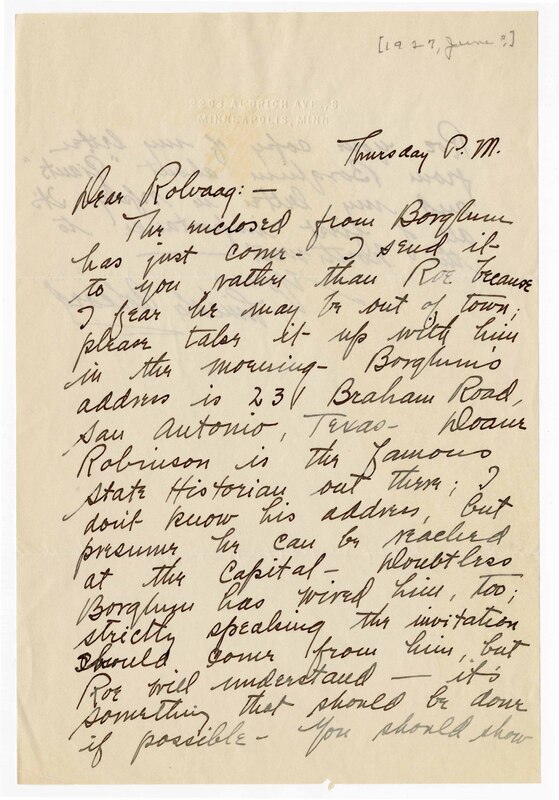 [1927, June?]
2203 ALDRICH AVE., S
MINNEAPOLIS, MINN.
Thursday P. M.
Dear Rolvaag: —
The enclosed from Borglum
has just come - I send it
to you rather than Roe because
I fear he may be out of town;
please take it up with him
in the morning - Borglum's
address is 231 Braham Road,
San Antonio, Texas - Doane
Robinson is the famous
State Historian out there; I
don't know his address, but
presume he can be reached
at the Capital - Doubtless
Borglum has wired him, too;
strictly speaking the invitation
should come from him, but
Roe will understand — it's
something that should be done
if possible - You should show